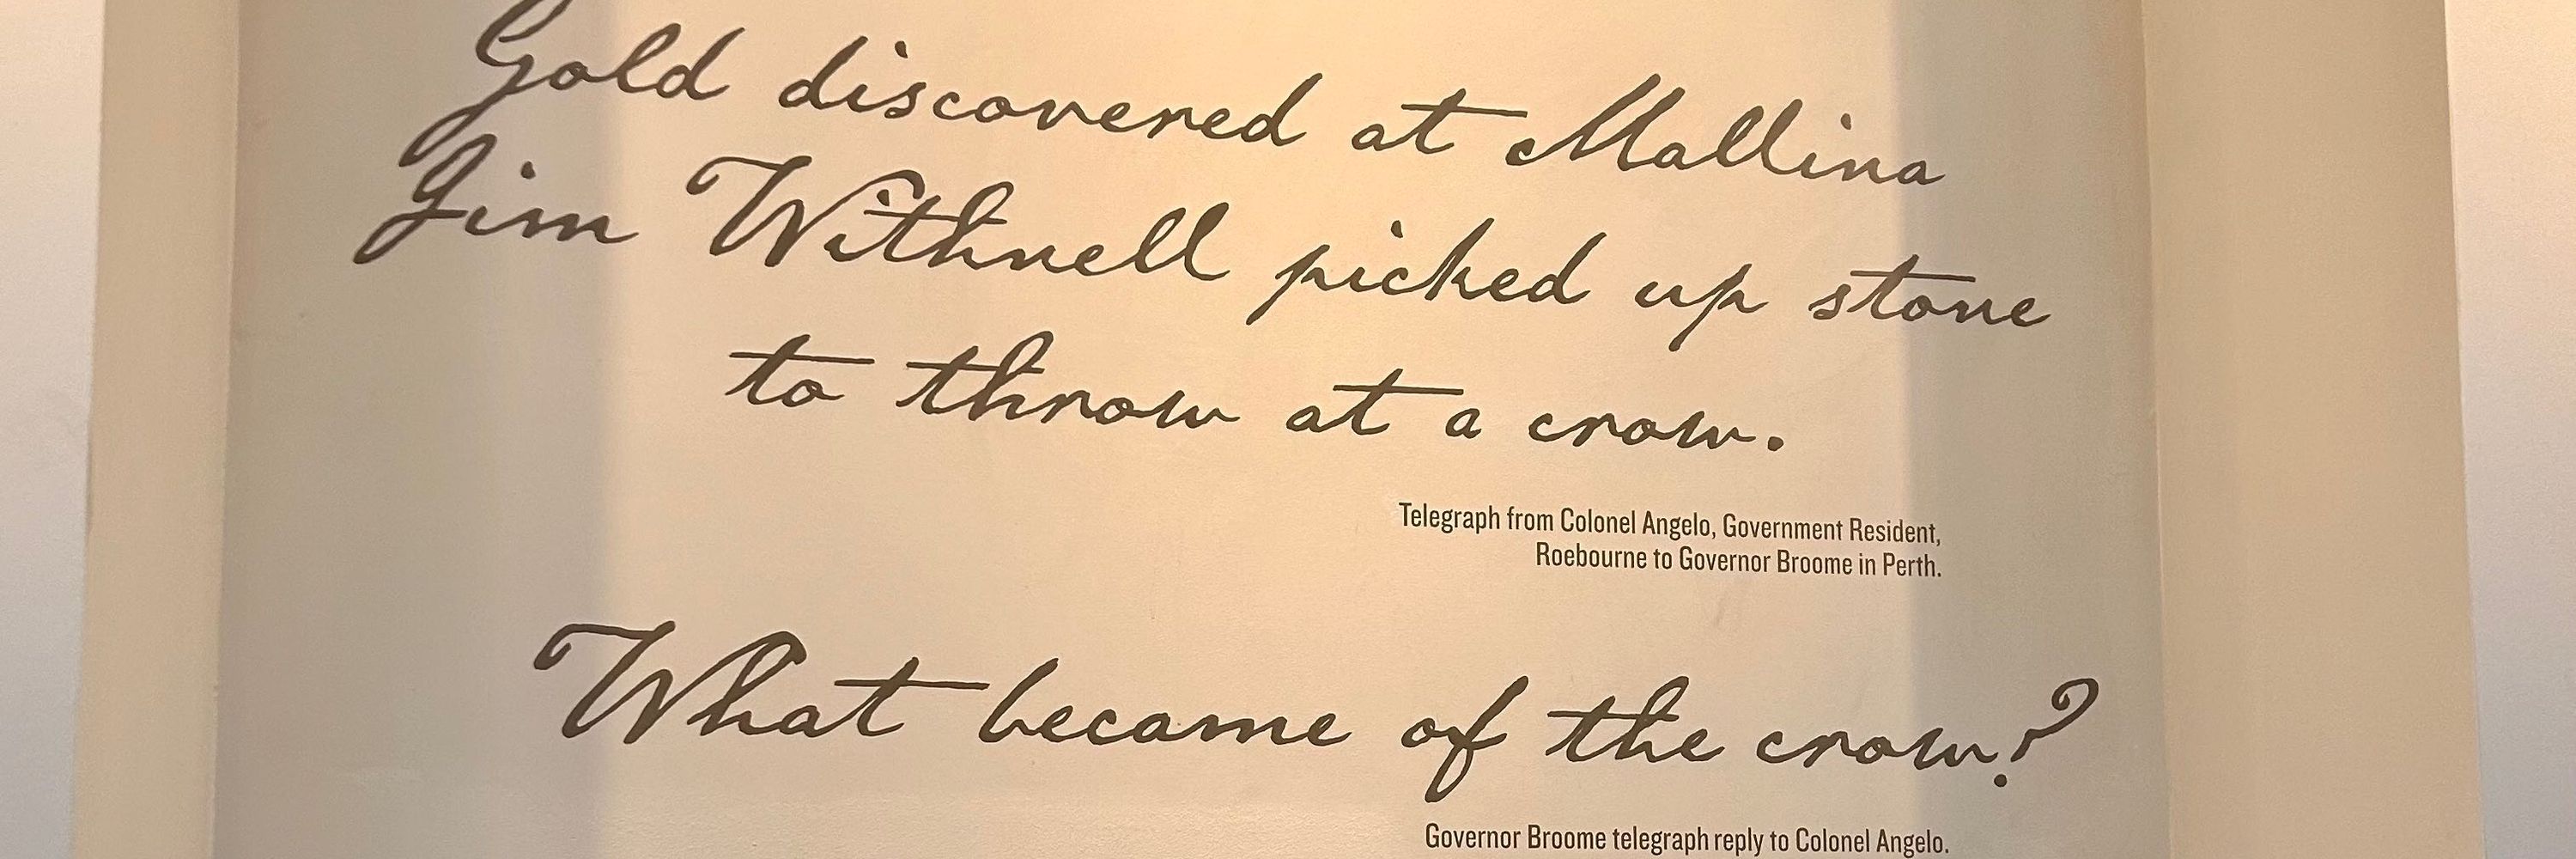 Gold discovered at Mallina
Jim Withnell picked up stone
to throw at a crow.
Telegraph from Colonel Angelo, Government Resident,
Roebourne to Governor Broome in Perth.
What became of the crow?
Governor Broome telegraph reply to Colonel Angelo.